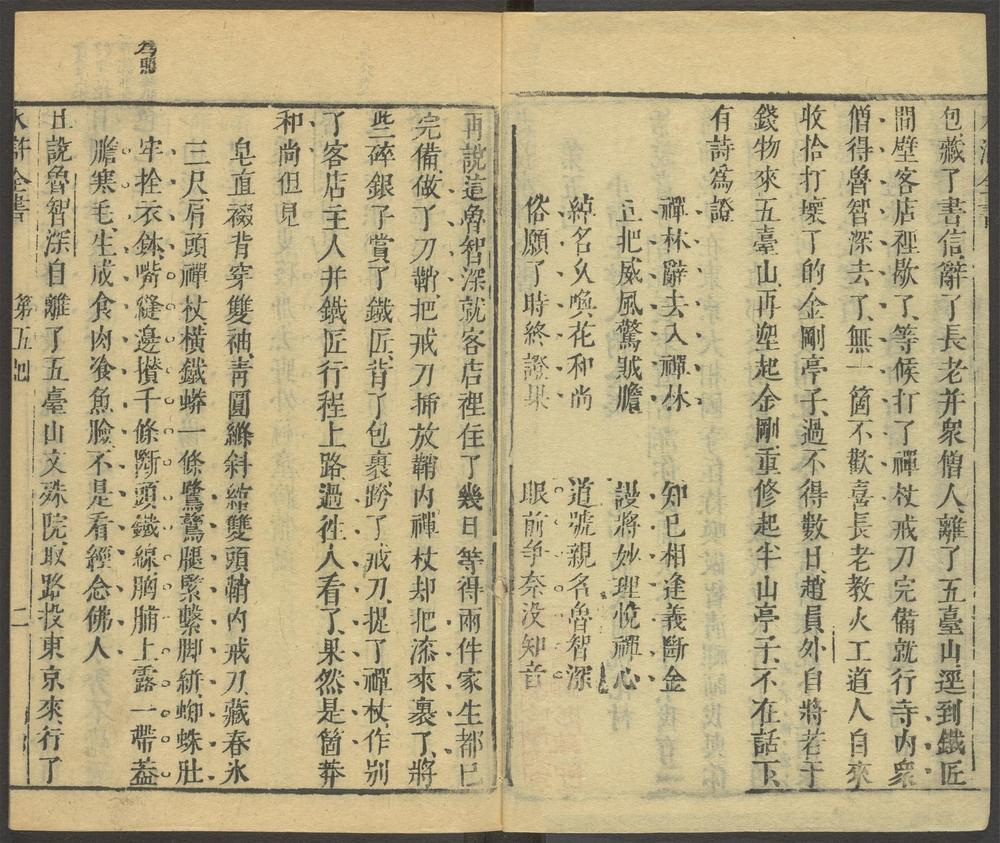 包藏了書信、辭了長老并衆僧人、離了五臺山、逕到鐵匠
間壁客店裡歇了、等候打了禪杖戒刀完備就行、寺内衆
僧得魯智深去了、無一箇不歡喜、長老教火工道人自來
收拾打壞了的金剛亭子、過不得數日、趙員外自將若干
錢物來五臺山、再塑起金剛、重修起半山亭子、不在話下、
有詩爲證
禪林辭去入禪林 知已相逢義斷金
且把威風驚賊膽 謾將妙理悅禪心
綽名久喚花和尚 道號親名魯智深
俗願了時終證果 眼前爭奈没知音
再說這魯智深就客店裡住了幾日、等得兩件家生都已
完備、做了刀鞘、把戒刀揷放鞘内、禪杖却把漆來裹了、將
些碎銀子賞了鐵匠、背了包裹、跨了戒刀、提了禪杖、作別
了客店主人并鐵匠、行程上路、過徃人看了、果然是箇莽
和尚、但見
皂直裰背穿雙袖、靑圓縧斜綰雙頭、鞘内戒刀、藏春氷
三尺、肩頭禪杖、橫鐵蟒一條、鷺鷥腿緊繫脚絣、蜘蛛肚
牢拴衣鉢、嘴縫邊攅千條斷頭鐵線、胸脯上露一帶葢
膽寒毛、生成食肉飡魚臉、不是看經念佛人
且說魯智深自離了五臺山文殊院、取路投東京來、行了
水滸全書 第五囘 二